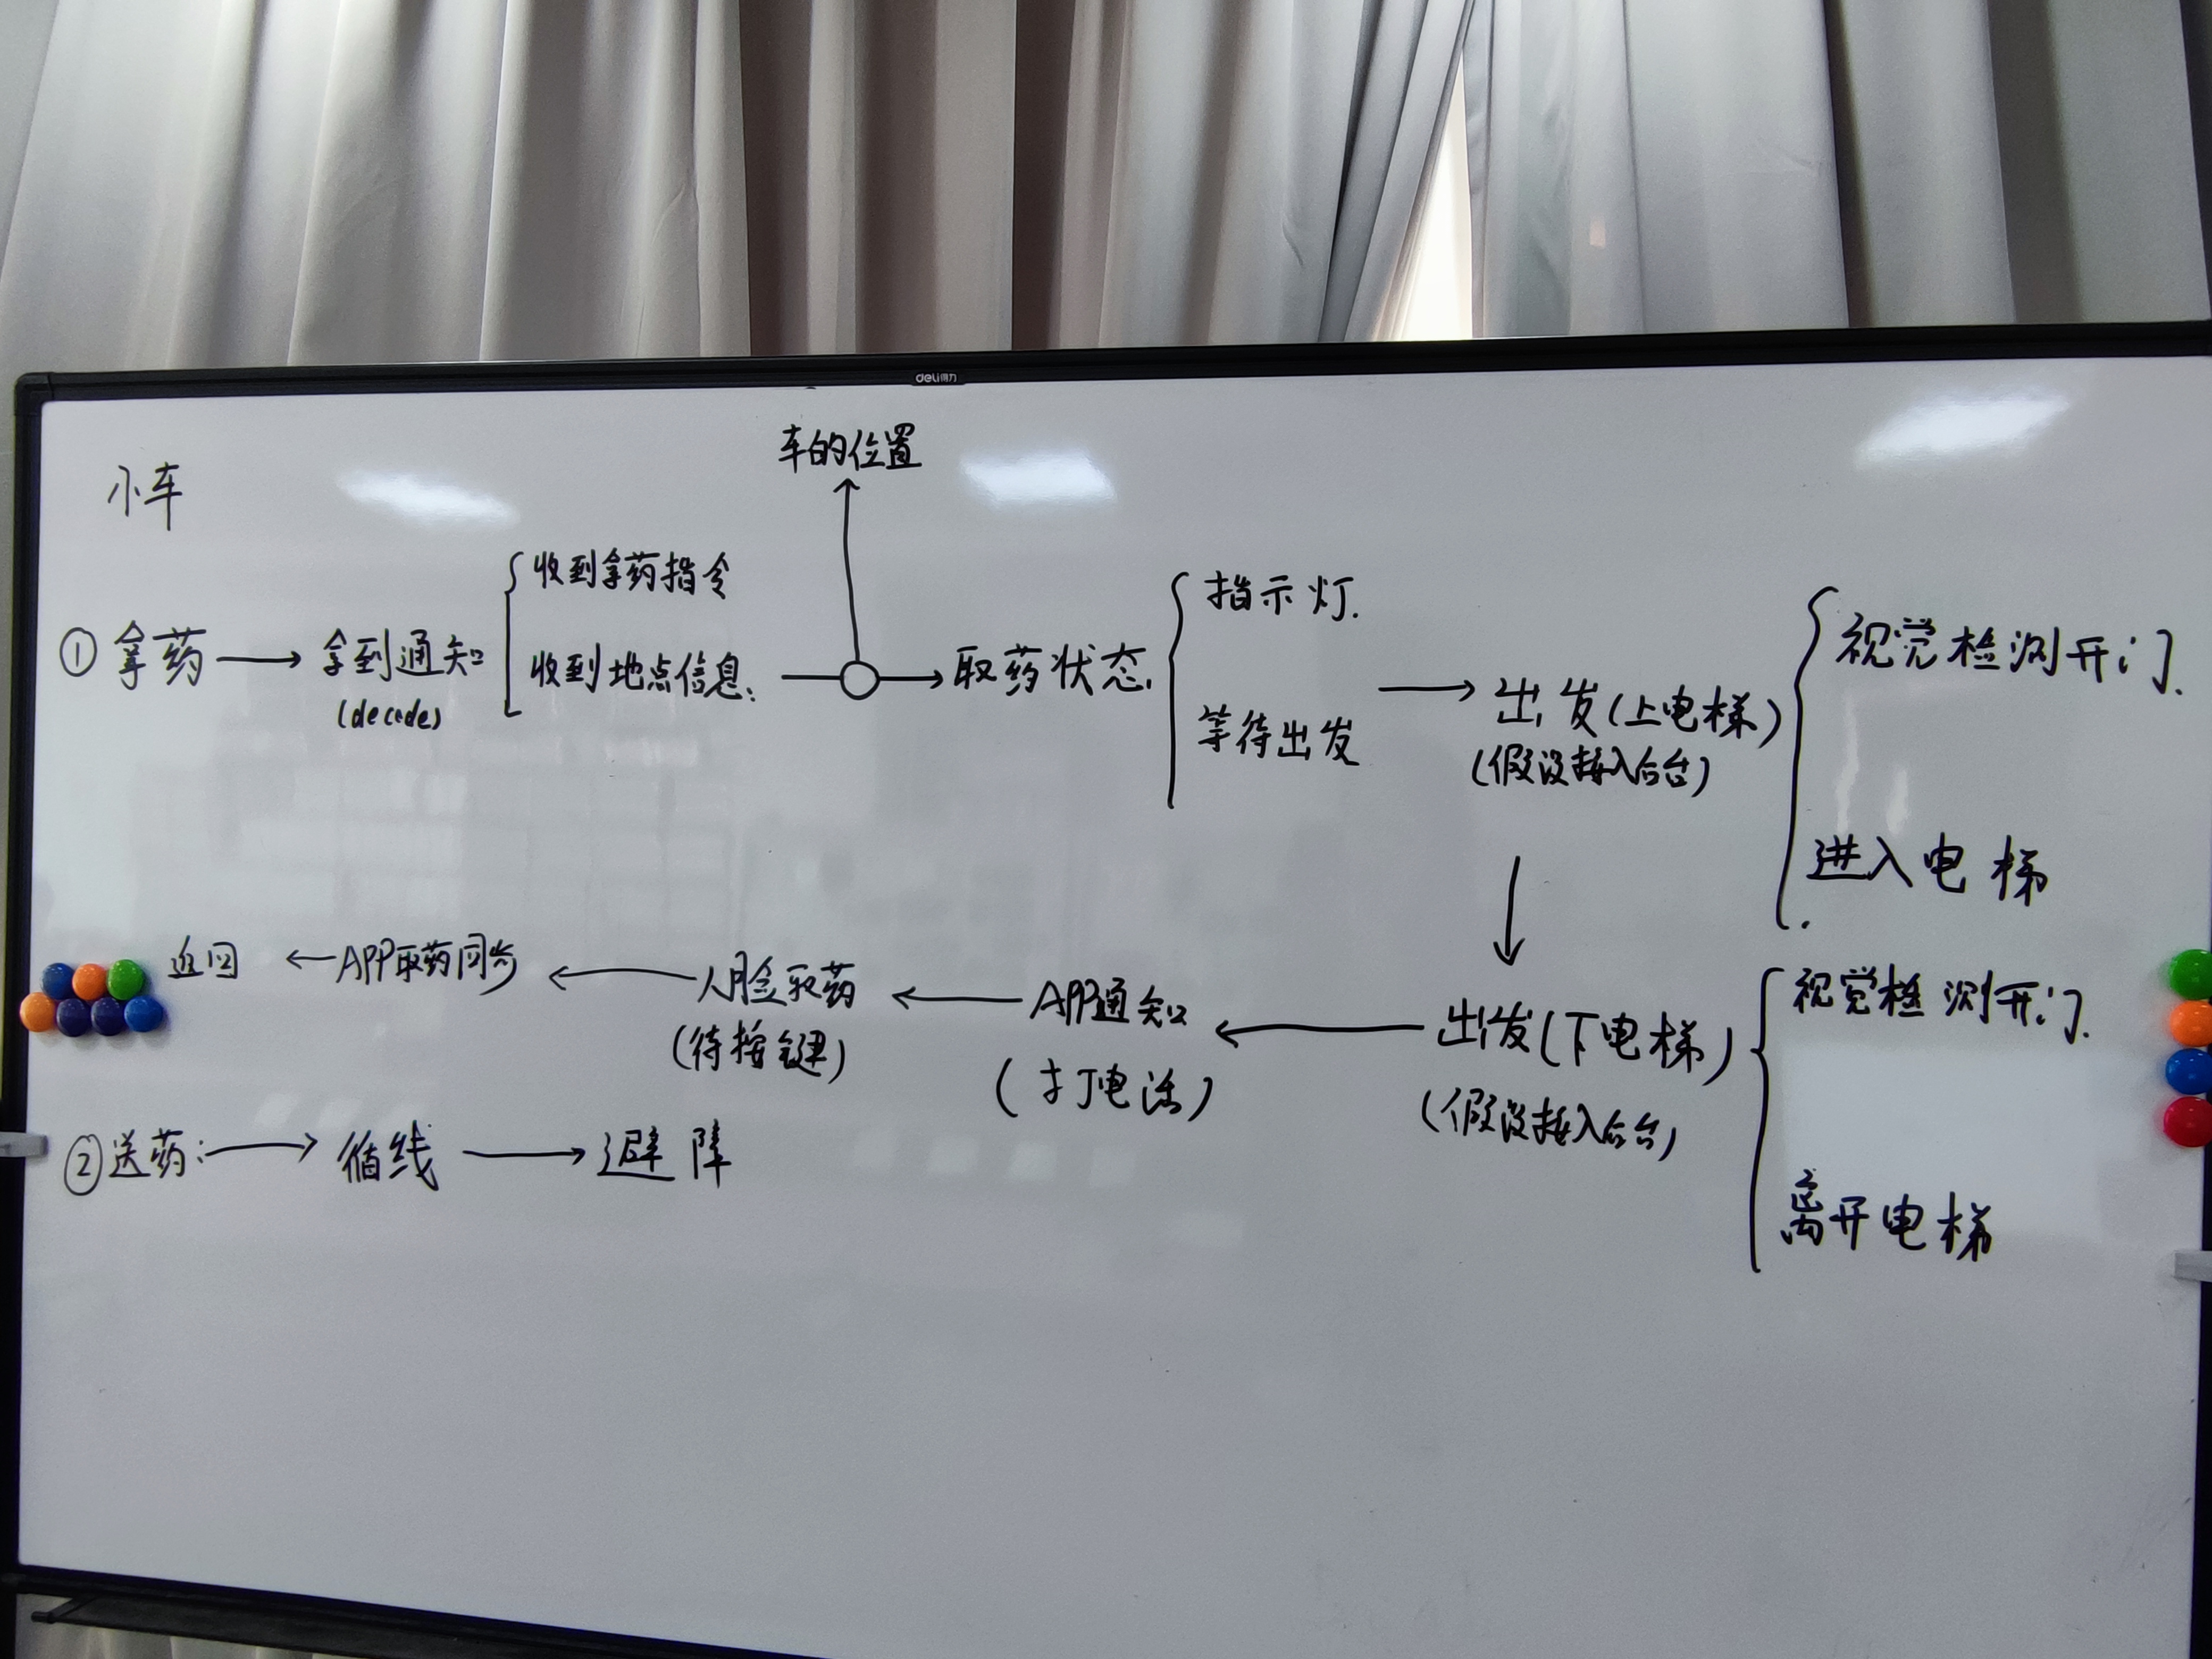 deli得力
车的位置
小车
收到拿药指令
① 拿药 → 拿到通知
(decode)
收到地点信息:
取药状态.
指示灯.
等待出发
→ 出发(上电梯)
(假设接入后台)
视觉检测开门.
进入电梯
↓
出发(下电梯)
(假设接入后台)
视觉检测开门.
离开电梯
← APP通知
(打电话)
← 人脸取药
(待按键)
← APP取药同步
← 返回
② 送药: → 循线 → 避障